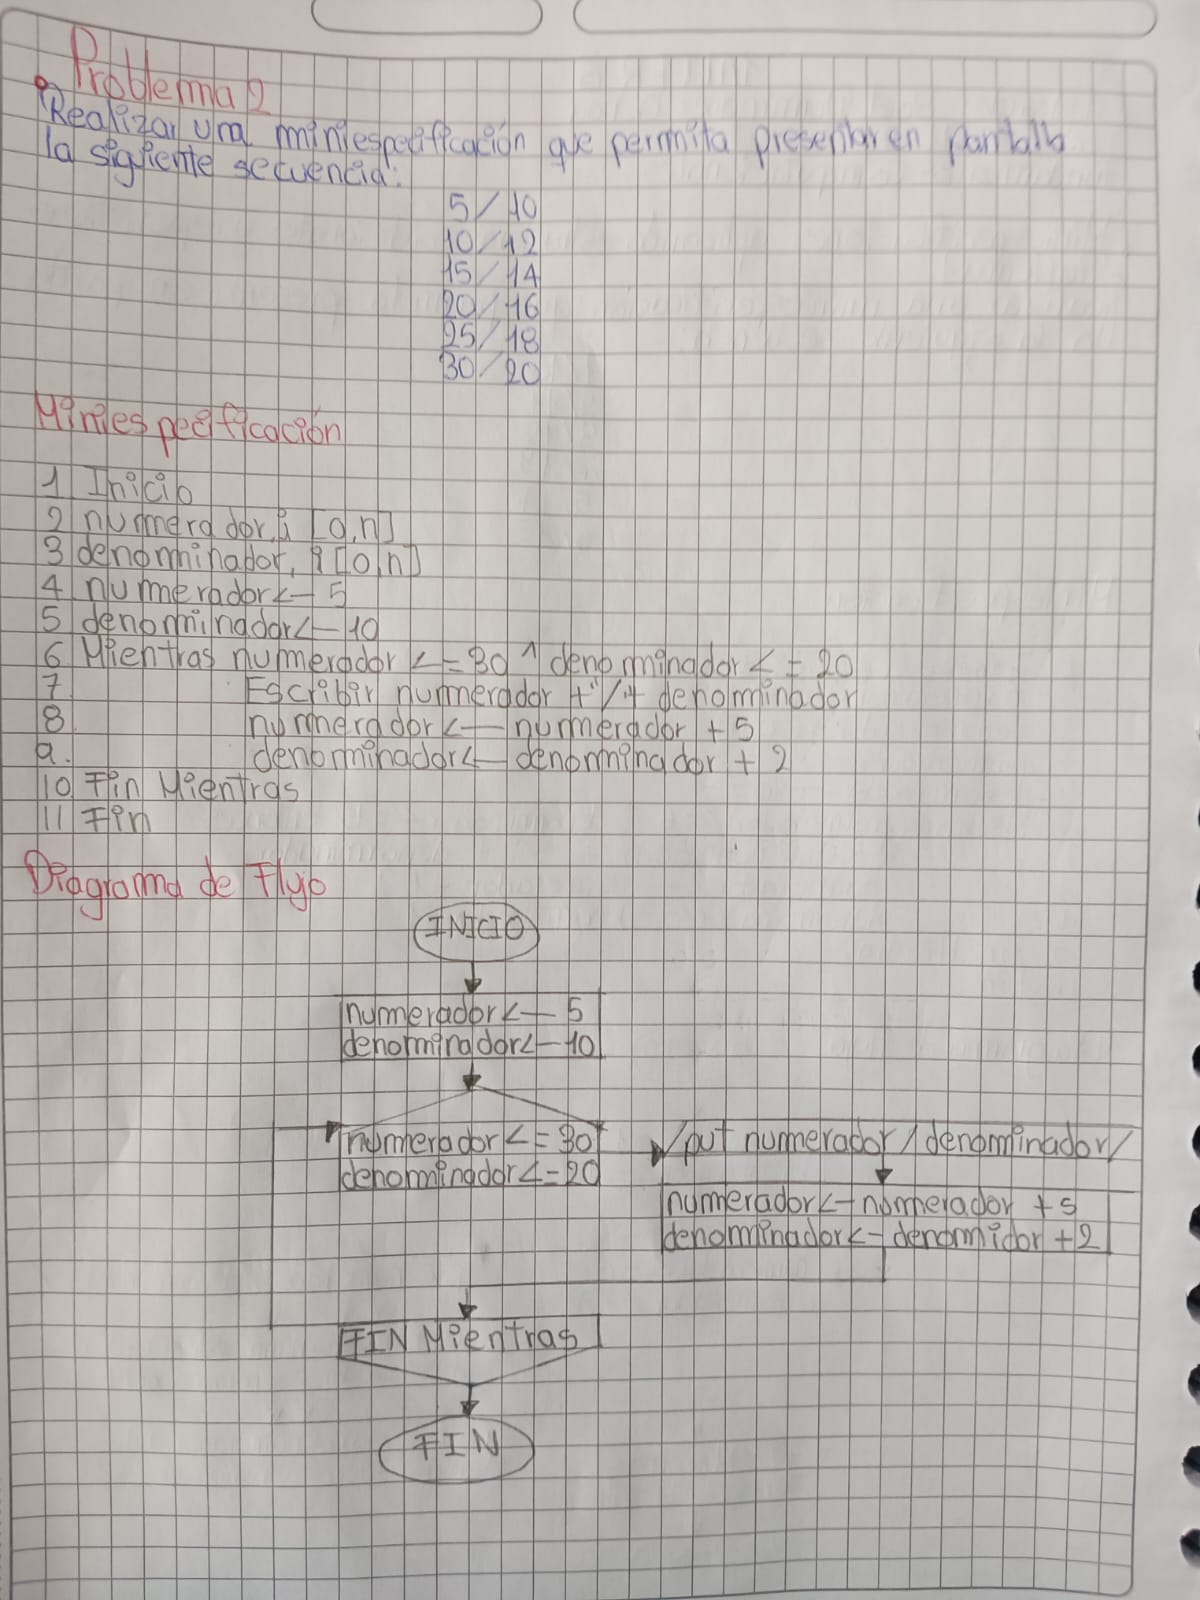 Problema 2
Realizar una miniespecificación que permita presentar en pantalla
la siguiente secuencia:
5/10
10/12
15/14
20/16
25/18
30/20
Miniespecificación
1 Inicio
2 numerador, i [0,n]
3 denominador, i [0,n]
4 numerador <- 5
5 denominador <- 10
6 Mientras numerador <= 30 ^ denominador <= 20
7 Escribir numerador + "/" + denominador
8 numerador <- numerador + 5
9. denominador <- denominador + 2
10 Fin Mientras
11 Fin
Diagrama de Flujo
INICIO
numerador <- 5
denominador <- 10
numerador <= 30
denominador <= 20
put numerador / denominador
numerador <- numerador + 5
denominador <- denomidor + 2
FIN Mientras
FIN